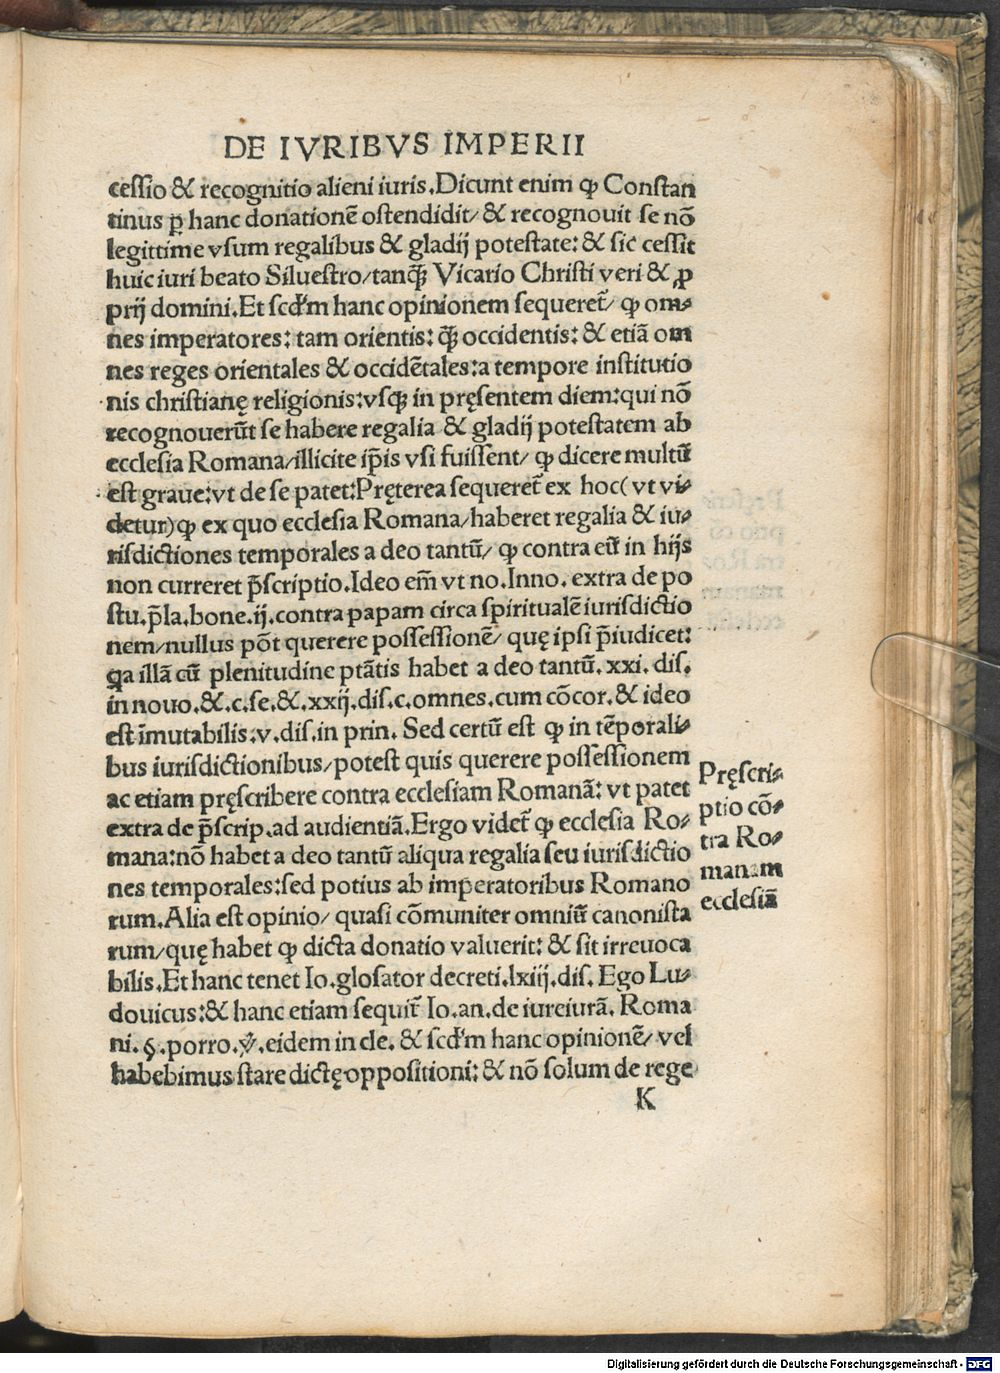 DE IVRIBVS IMPERII
cessio & recognitio alieni iuris. Dicunt enim ꝙ Constan
tinus ꝑ hanc donationē ostendidit/ & recognouit se nō
legittime vsum regalibus & gladij potestate: & sic cessit
huic iuri beato Siluestro/tanꝗ̄ Vicario Christi veri & ꝓ
prij domini. Et scd'm hanc opinionem sequeret̃/ ꝙ om-
nes imperatores: tam orientis: ꝗ̄ occidentis: & etiā om
nes reges orientales & occidētales: a tempore institutio
nis christianę religionis: vsꝗ̄ in pręsentem diem: qui nō
recognouerūt se habere regalia & gladij potestatem ab
ecclesia Romana/illicite ip̄is vsi fuissent/ ꝙ dicere multū
est graue: vt de se patet: Pręterea sequeret̃ ex hoc( vt vi-
detur) ꝙ ex quo ecclesia Romana/haberet regalia & iu-
risdictiones temporales a deo tantū/ ꝙ contra eū in hijs
non curreret p̄scriptio. Ideo em̄ vt no. Inno. extra de po
stu. p̄la. bone. ij. contra papam circa spiritualē iurisdictio
nem/nullus pōt querere possessionē/ quę ipsi p̄iudicet:
ꝗa illā cū plenitudine ptātis habet a deo tantū. xxi. dis.
in nouo. &. c. se. &. xxij. dis. c. omnes. cum cōcor. & ideo
est īmutabilis: v. dis. in prin. Sed certū est ꝙ in tēporali-
bus iurisdictionibus/potest quis querere possessionem
ac etiam pręscribere contra ecclesiam Romanā: vt patet
extra de p̄scrip. ad audientiā. Ergo videt̃ ꝙ ecclesia Ro-
mana: nō habet a deo tantū aliqua regalia seu iurisdictio
nes temporales: sed potius ab imperatoribus Romano
rum. Alia est opinio/ quasi cōmuniter omniū canonista
rum/quę habet ꝙ dicta donatio valuerit: & sit irreuoca
bilis. Et hanc tenet Io. glosator decreti. lxiij. dis. Ego Lu-
douicus: & hanc etiam sequit̃ Io. an. de iureiurā. Roma
ni. §. porro. ℣. eidem in cle. & scd'm hanc opinionē/ vel
habebimus stare dictę oppositioni: & nō solum de rege
K
Pręscri-
ptio cō-
tra Ro-
manam
ecclesiā
Digitalisierung gefördert durch die Deutsche Forschungsgemeinschaft - DFG